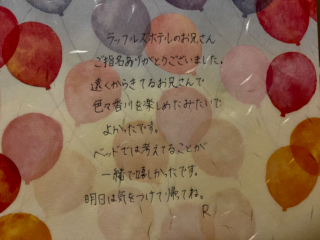 ラッフルズホテルのお兄さん
ご指名ありがとうございました。
遠くからきてるお兄さんで
色々香川を楽しめたみたいで
よかったです。
ベッドでは考えてることが
一緒で嬉しかったです。
明日は気をつけて帰ってね。
R